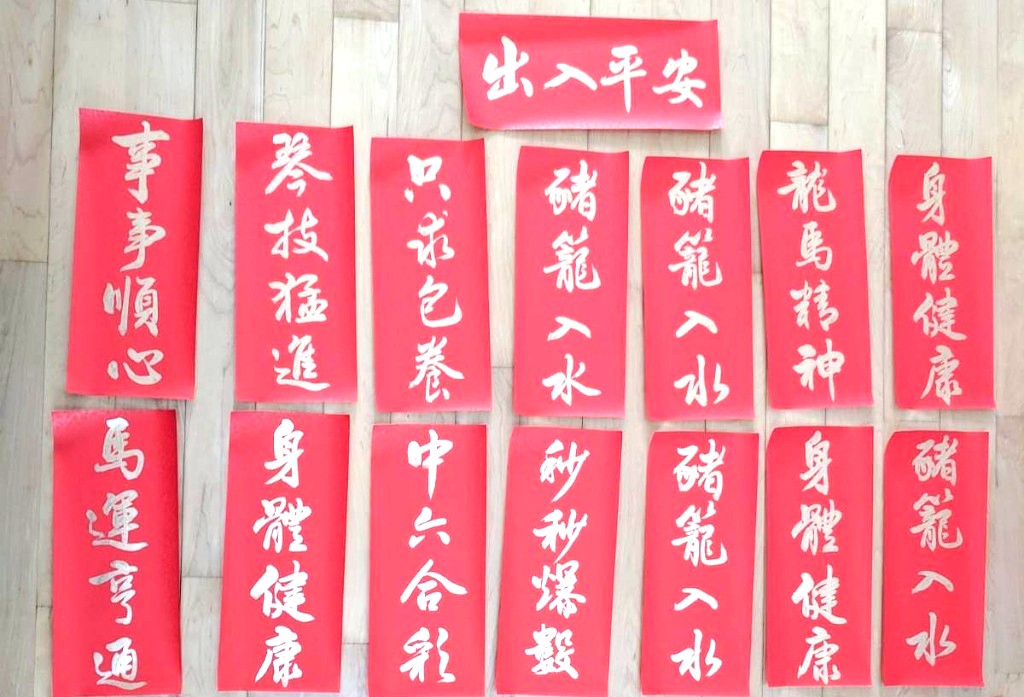 出入平安
事事順心
琴技猛進
只求包養
豬籠入水
豬籠入水
龍馬精神
身體健康
馬運亨通
身體健康
中六合彩
秒秒爆彀
豬籠入水
身體健康
豬籠入水